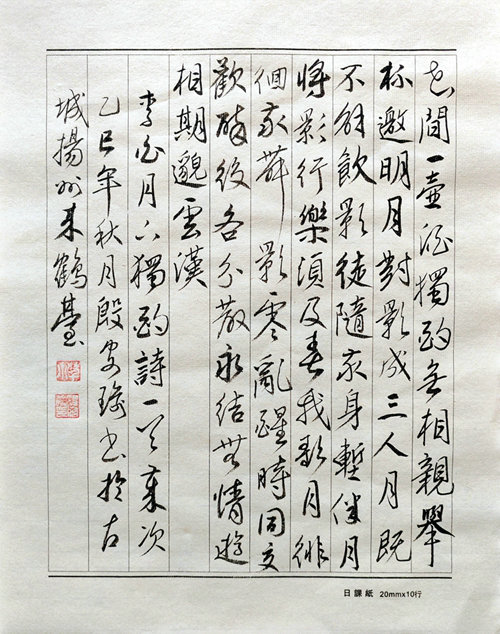 花間一壺酒獨酌無相親舉
杯邀明月對影成三人月既
不解飲影徒隨我身暫伴月
將影行樂須及春我歌月徘
徊我舞影零亂醒時同交
歡醉後各分散永結無情遊
相期邈雲漢
李白月下獨酌詩一首歲次
乙巳年秋月殷書於古
城揚州來鶴臺
日課紙 20mm×10行